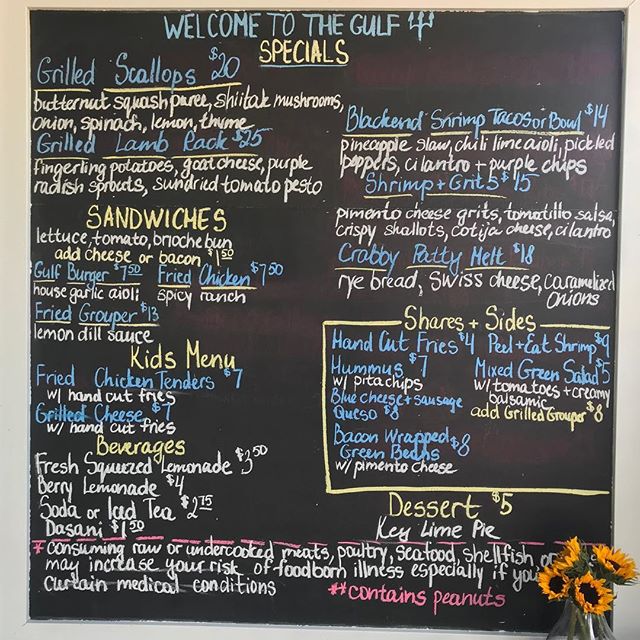 WELCOME TO THE GULF
SPECIALS
Grilled Scallops $20
butternut squash puree, shiitake mushrooms,
onion, spinach, lemon, thyme
Grilled Lamb Rack $25
fingerling potatoes, goat cheese, purple
radish sprouts, sundried tomato pesto
Blackend Shrimp Tacos or Bowl $14
pineapple slaw, chili lime aioli, pickled
peppers, cilantro + purple chips
Shrimp + Grits $15
pimento cheese grits, tomatillo salsa,
crispy shallots, cotija cheese, cilantro
Crabby Patty Melt $18
rye bread, swiss cheese, caramelized
onions
SANDWICHES
lettuce, tomato, brioche bun
add cheese or bacon $1.50
Gulf Burger $7.50 Fried Chicken $7.50
house garlic aioli spicy ranch
Fried Grouper $13
lemon dill sauce
Kids Menu
Fried Chicken Tenders $7
w/ hand cut fries
Grilled Cheese $7
w/ hand cut fries
Beverages
Fresh Squeezed Lemonade $3.50
Berry Lemonade $4
Soda or Iced Tea $2.75
Dasani $1.50
Shares + Sides
Hand Cut Fries $4
Hummus $7
w/ pita chips
Blue cheese + sausage
Queso $8
Bacon Wrapped $8
Green Beans
w/ pimento cheese
Peel + Eat Shrimp $9
Mixed Green Salad $5
w/ tomatoes + creamy
balsamic
add Grilled Grouper $8
Dessert $5
Key Lime Pie
* consuming raw or undercooked meats, poultry, seafood, shellfish or
may increase your risk of foodborn illness especially if you
curtain medical conditions
** contains peanuts